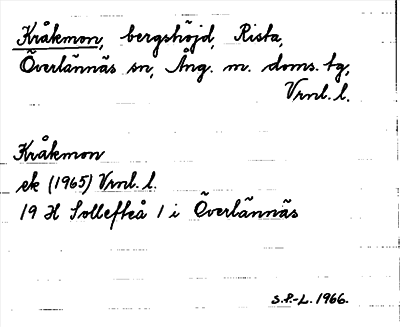 Kråkmon, bergshöjd, Rista,
Överlännäs sn, Ång. m. doms. tg,
Vrml. l.
Kråkmon
ek (1965) Vrml. l.
19 H Sollefteå 1 i Överlännäs
S.P.-L. 1966.